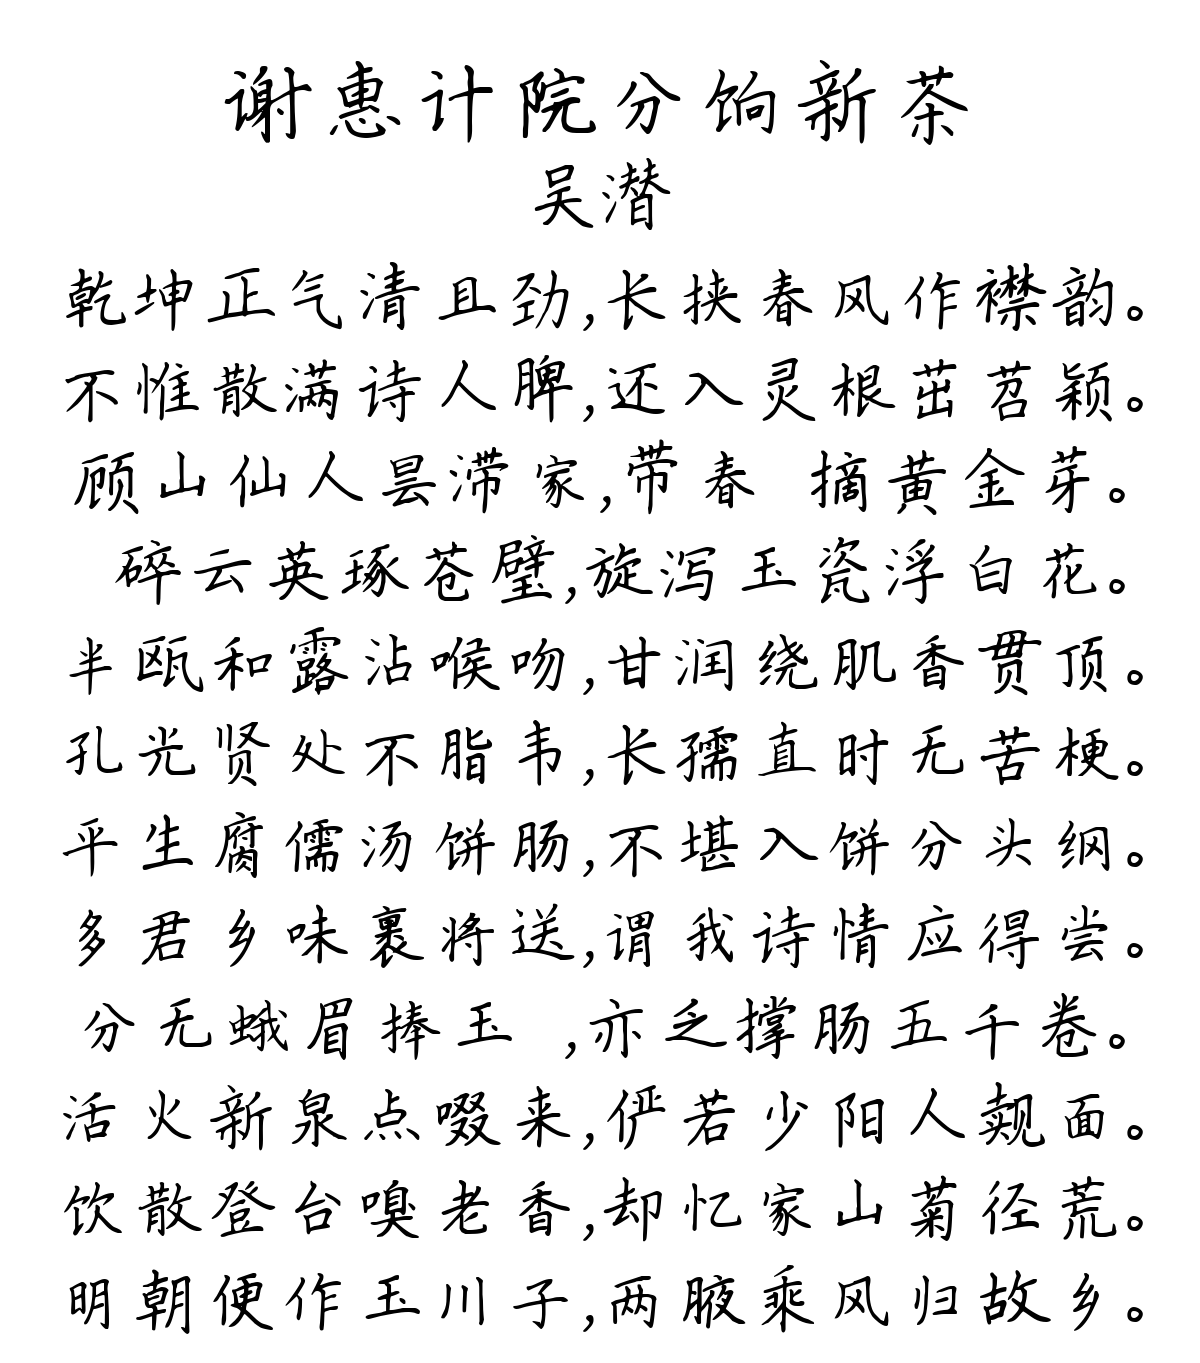 谢惠计院分饷新茶
吴潜
乾坤正气清且劲,长挟春风作襟韵。
不惟散满诗人脾,还入灵根茁苕颖。
顾山仙人昙滞家,带春 摘黄金芽。
碎云英琢苍璧,旋泻玉瓷浮白花。
半瓯和露沾喉吻,甘润绕肌香贯顶。
孔光贤处不脂韦,长孺直时无苦梗。
平生腐儒汤饼肠,不堪入饼分头纲。
多君乡味裹将送,谓我诗情应得尝。
分无蛾眉捧玉 ,亦乏撑肠五千卷。
活火新泉点啜来,俨若少阳人觌面。
饮散登台嗅老香,却忆家山菊径荒。
明朝便作玉川子,两腋乘风归故乡。